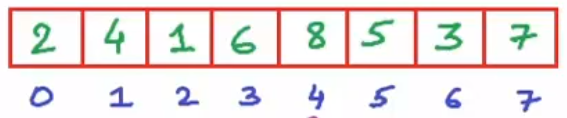 2 4 1 6 8 5 3 7
0 1 2 3 4 5 6 7